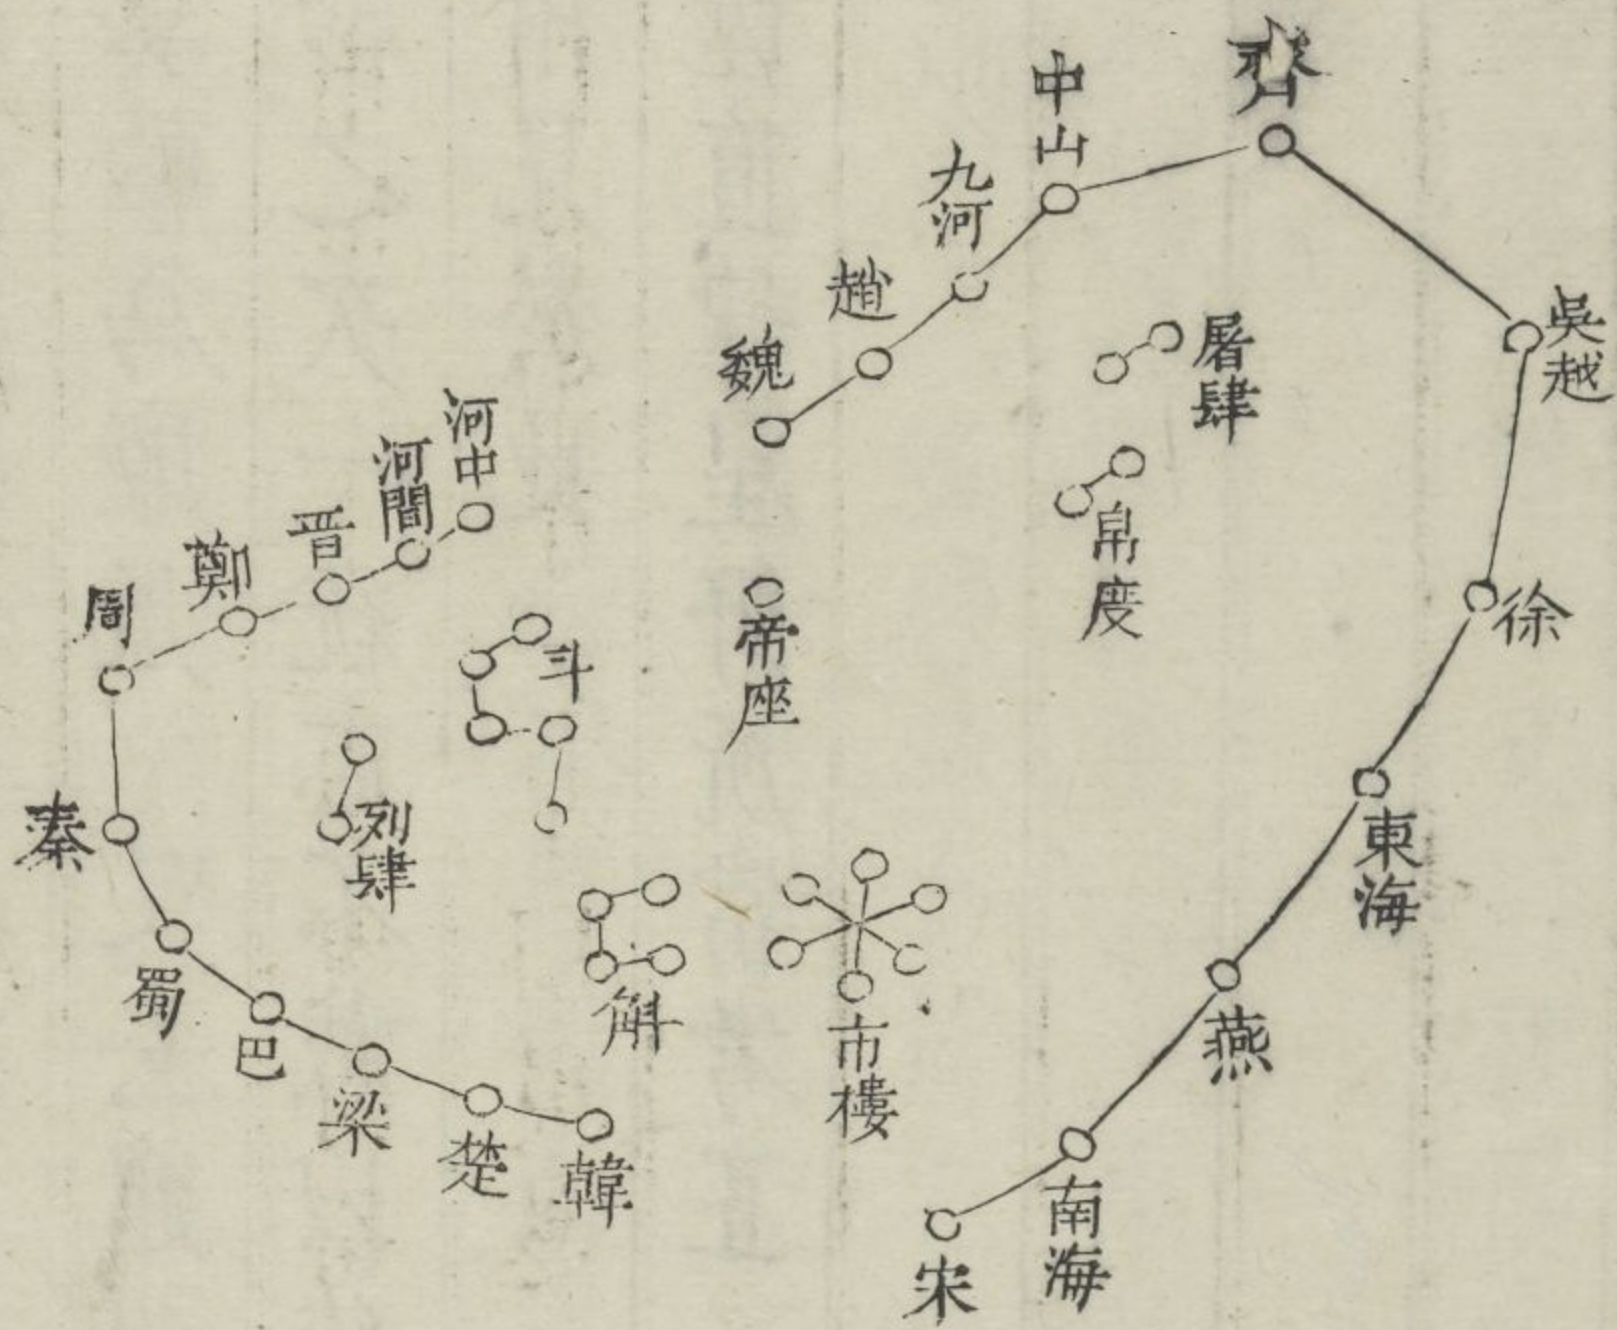 齊
中山
九河
趙
魏
吳越
徐
東海
燕
南海
宋
屠肆
帛度
帝座
市樓
河中
河間
晋
鄭
周
秦
蜀
巴
梁
楚
韓
斗
列肆
斛